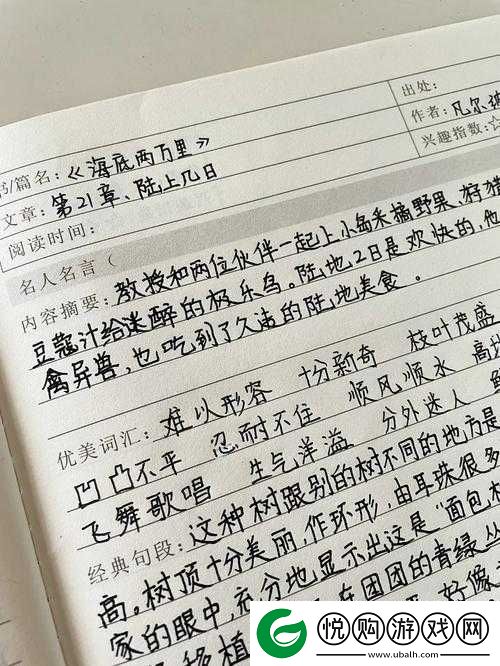 出处:
书/篇名:《海底两万里》
作者:凡尔
文章:第21章、陆上几日
兴趣指数:☆
阅读时间:
名人名言(
内容摘要:教授和两位伙伴一起上小岛来摘野果、狩猎
豆蔻汁给迷醉的极乐鸟。陆地2日是欢快的,他
禽异兽,也吃到了久违的陆地美食。
优美词汇:难以形容 十分新奇 枝叶茂盛
凹凸不平 忍耐不住 顺风顺水
飞舞歌唱 生气洋溢 分外迷人
经典句段:这种树跟别的树不同的地方是
高。树顶十分美丽,作环形,由耳珠很多
家的眼中,充分地显示出这是“面包
在团团的青绿丛
移植
好像
悦购游戏网
www.ubalh.com